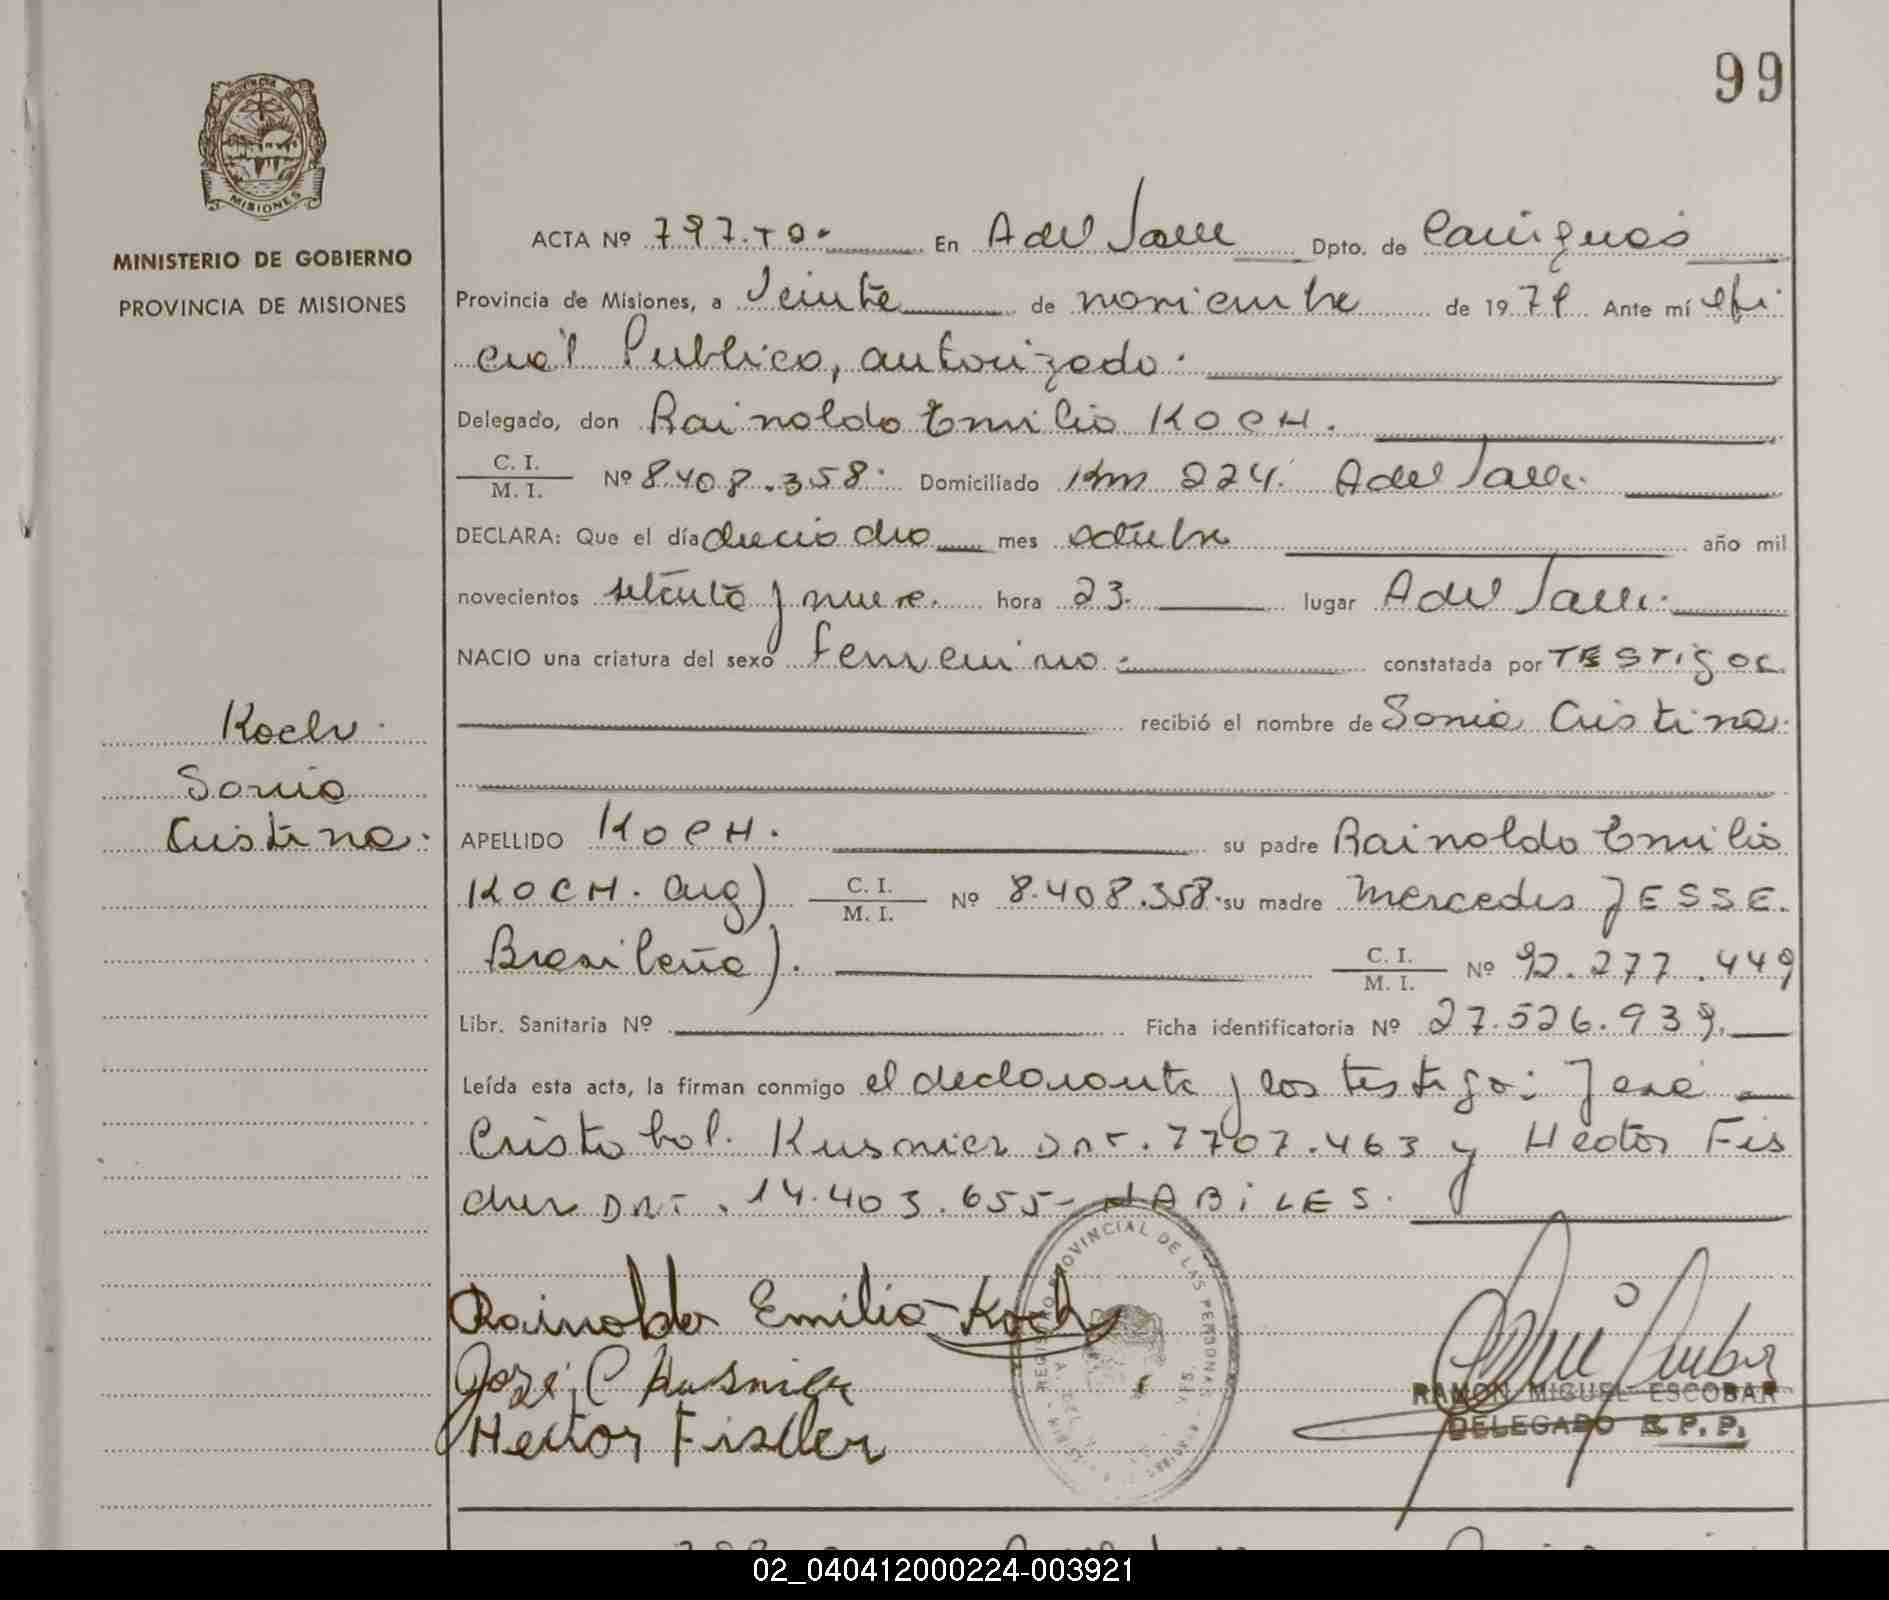 99
PROVINCIA DE
MISIONES
MINISTERIO DE GOBIERNO
PROVINCIA DE MISIONES
ACTA Nº 797.T0. En A del Valle Dpto. de Cainguas
Provincia de Misiones, a Veinte de noviembre de 1979 Ante mí ofi
cial Publico, autorizado.
Delegado, don Rainoldo Emilio KOCH.
C. I.
M. I. Nº 8.408.358. Domiciliado Km 224. A del Valle.
DECLARA: Que el día dieciocho mes octubre año mil
novecientos setenta y nueve. hora 23. lugar A del Valle.
NACIO una criatura del sexo femenino. constatada por TESTigos
recibió el nombre de Sonia Cristina.
Koch.
Sonia
Cristina.
APELLIDO KOCH. su padre Rainoldo Emilio
KOCH. Arg) C. I.
M. I. Nº 8.408.358. su madre Mercedes JESSE.
Brasileña). C. I.
M. I. Nº 92.277.449
Libr. Sanitaria Nº Ficha identificatoria Nº 27.526.939.
Leída esta acta, la firman conmigo el declarante y los testigo: José
Cristobal. Kusnier DNI. 7707.463 y Hector Fis
cher DNI. 14.403.655- HABiLES.
Rainoldo Emilio Koch
José C Kusnier
Hector Fischer
REGISTRO PROVINCIAL DE LAS PERSONAS
RAMON MIGUEL ESCOBAR
DELEGADO R. P. P.
02_040412000224-003921